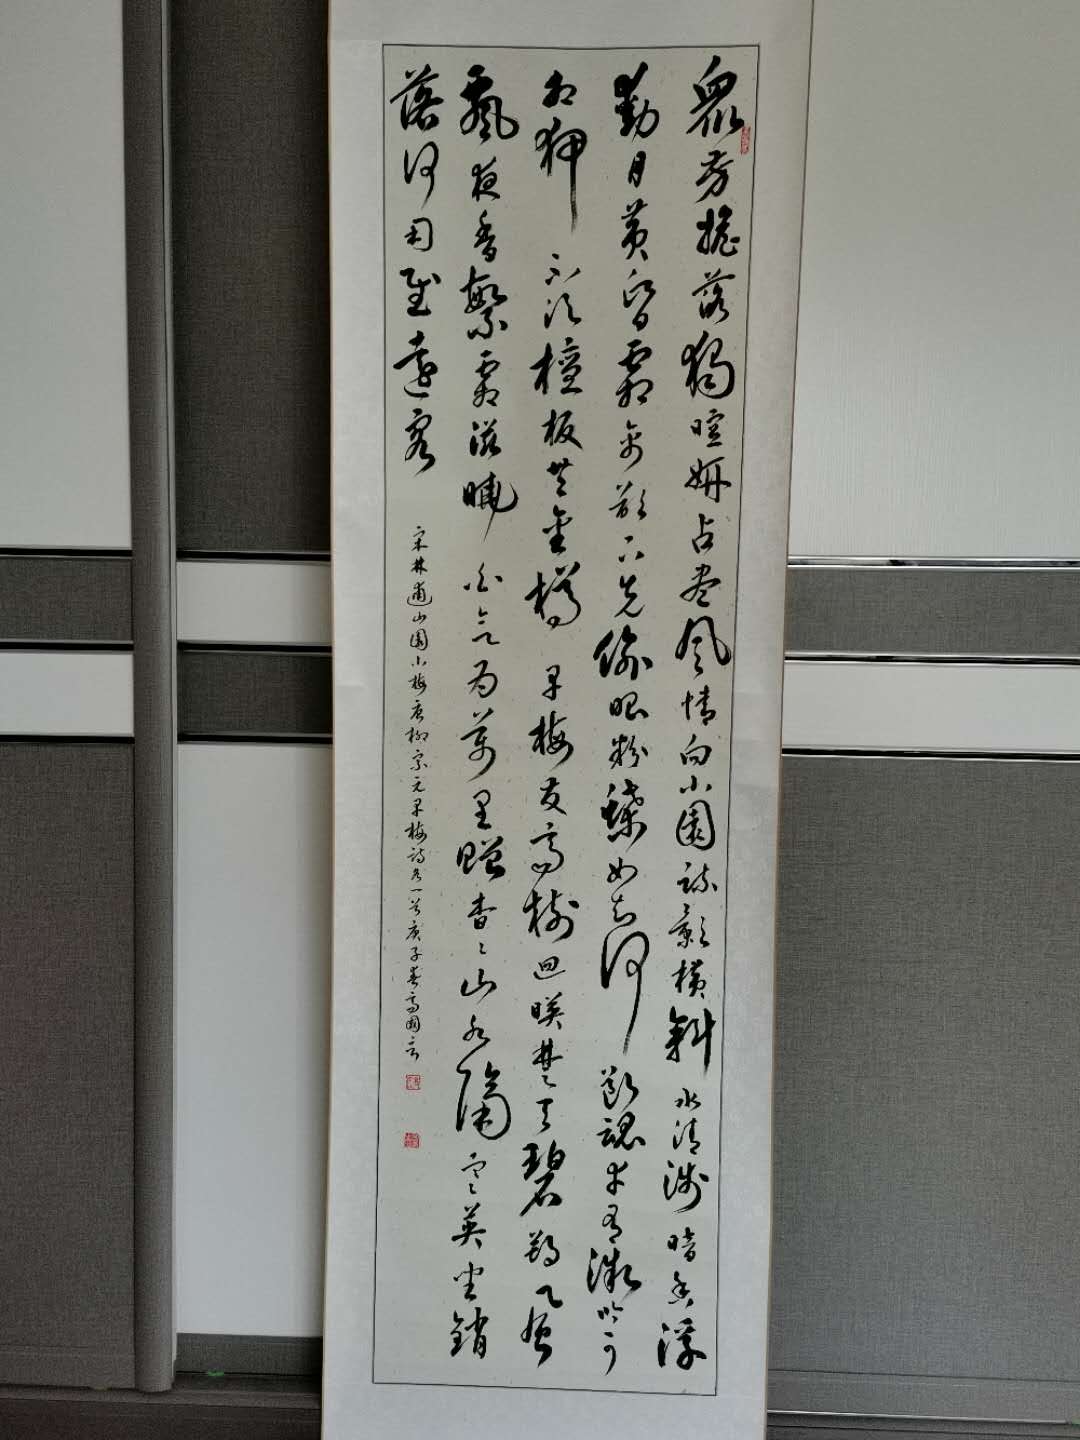 眾芳搖落獨暄妍占尽風情向小園疏影橫斜水清淺暗香浮
動月黃昏霜禽欲下先偷眼粉蝶如知何断魂幸有微吟可
相狎不須檀板共金樽早梅发高樹迥映楚天碧朔吹
飄夜香繁霜滋曉白欲為萬里贈杳杳山水隔寒英坐銷
落何用慰遠客
宋林逋山園小梅唐柳宗元早梅詩各一首庚子春高國